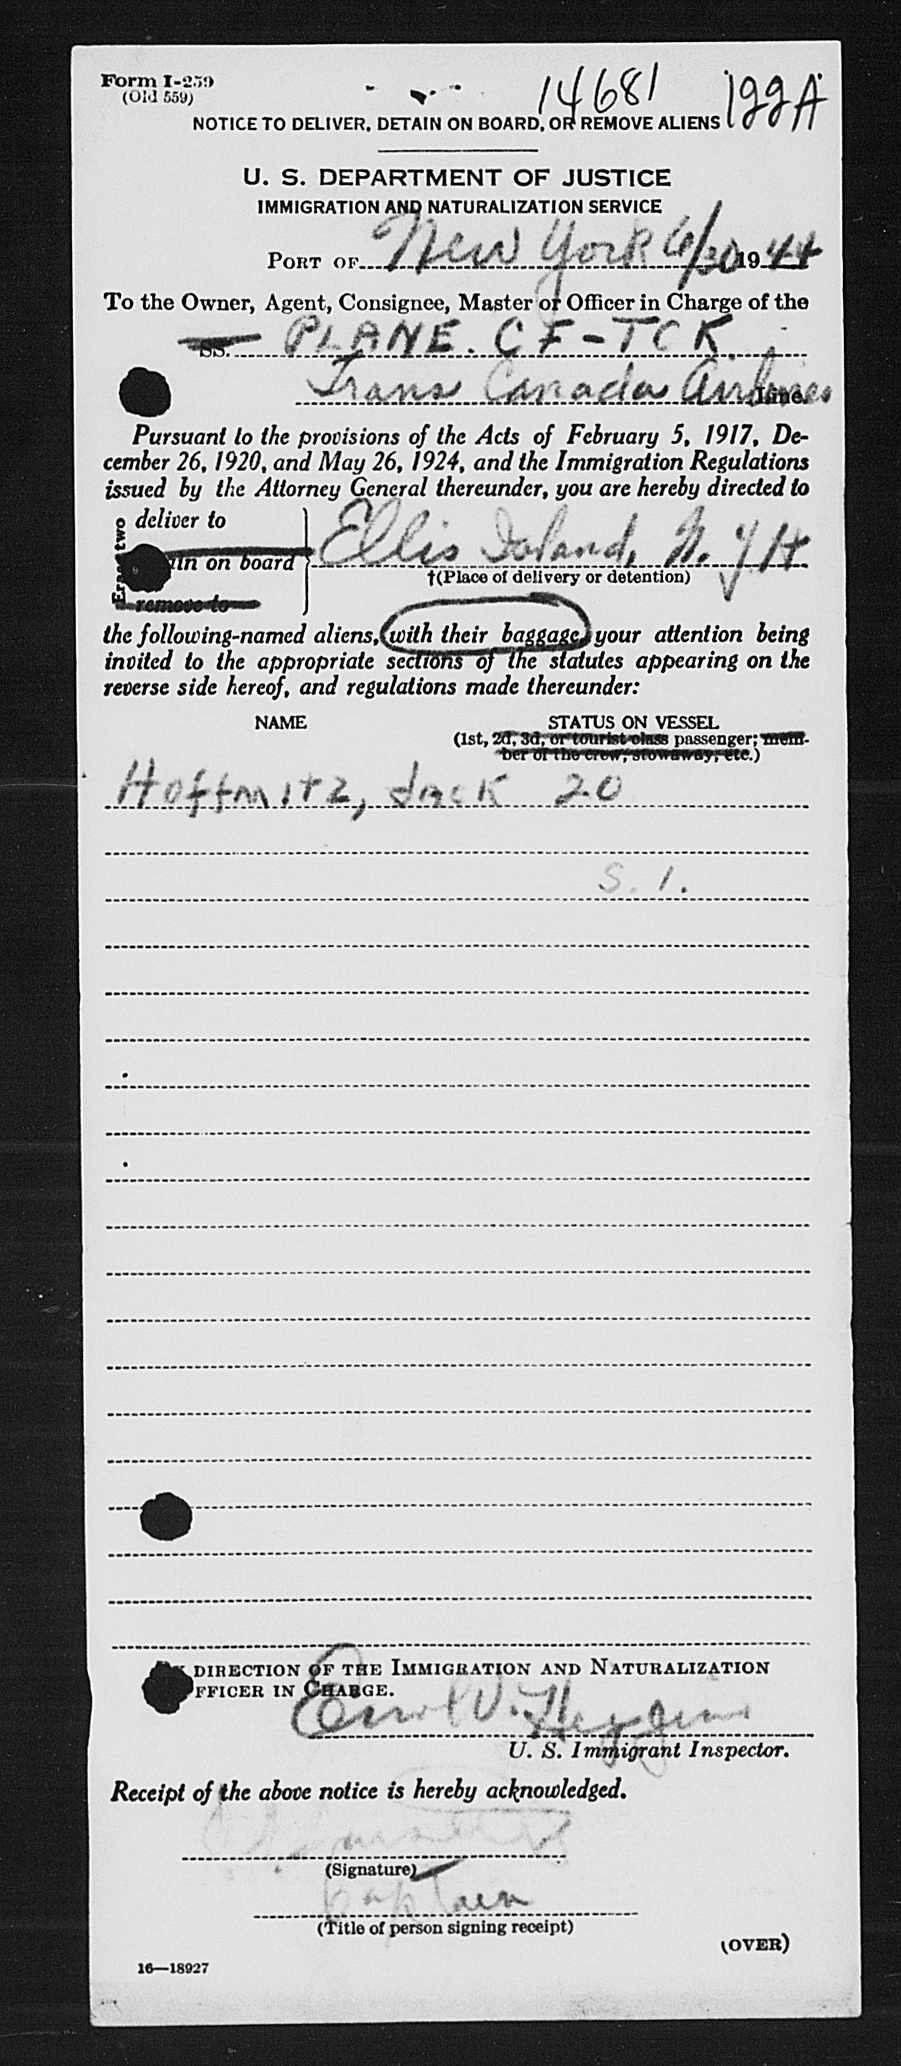 Form I-259
(Old 559)
14681
199A
NOTICE TO DELIVER, DETAIN ON BOARD, OR REMOVE ALIENS
U. S. DEPARTMENT OF JUSTICE
IMMIGRATION AND NATURALIZATION SERVICE
PORT OF New York 6/30 1944
To the Owner, Agent, Consignee, Master or Officer in Charge of the
SS. PLANE. CF-TCK
Trans Canada Airlines Line
Pursuant to the provisions of the Acts of February 5, 1917, De-
cember 26, 1920, and May 26, 1924, and the Immigration Regulations
issued by the Attorney General thereunder, you are hereby directed to
Erase two
deliver to
on board
remove to
Ellis Island, N. Y H
†(Place of delivery or detention)
the following-named aliens, with their baggage, your attention being
invited to the appropriate sections of the statutes appearing on the
reverse side hereof, and regulations made thereunder:
NAME STATUS ON VESSEL
(1st, 2d, 3d, or tourist class passenger; mem-
ber of the crew, stowaway, etc.)
Hoffmitz, Jack 20
S. I.
DIRECTION OF THE IMMIGRATION AND NATURALIZATION
OFFICER IN CHARGE.
U. S. Immigrant Inspector.
Receipt of the above notice is hereby acknowledged.
(Signature)
Captain
(Title of person signing receipt)
(OVER)
16—18927